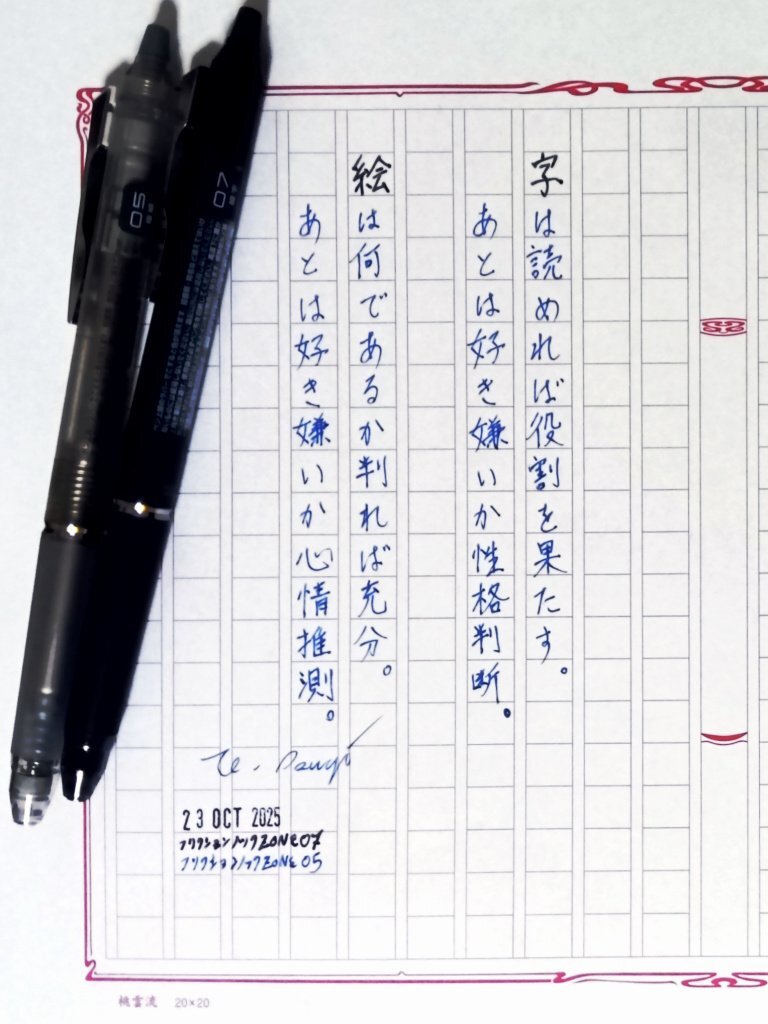 字は読めれば役割を果たす。
あとは好き嫌いか性格判断。
絵は何であるか判れば充分。
あとは好き嫌いか心情推測。
23 OCT 2025
フリクションノックZONE 07
フリクションノックZONE 05
05
07
桃雲流 20×20